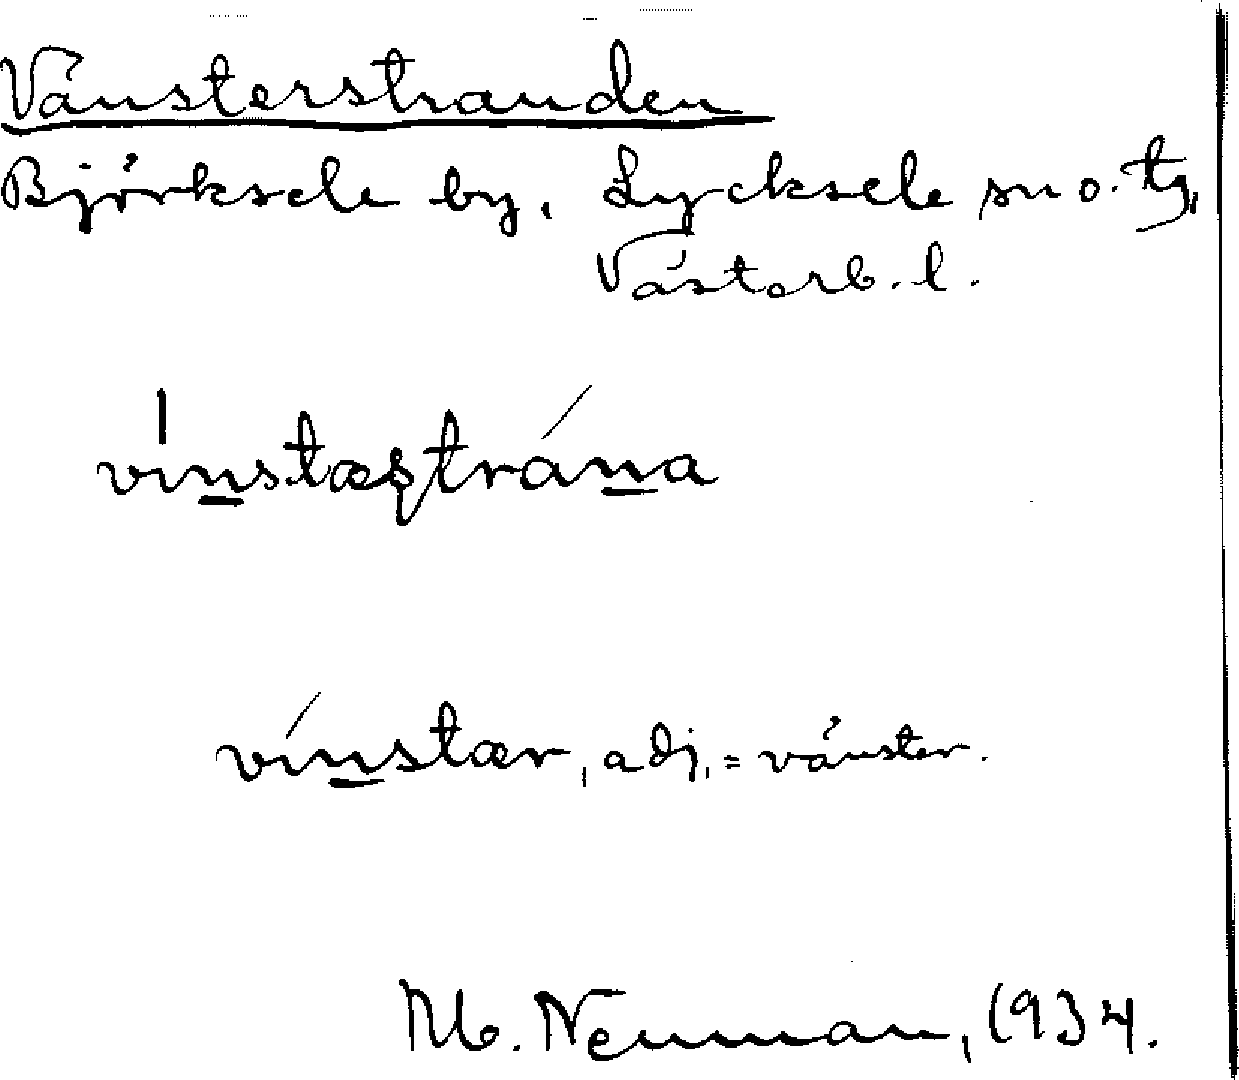 Vänsterstranden
Björksele by. Lycksele sn o. tg,
Västerb. l.
vinstæștrána
vínstær, adj, = vänster.
M. Neuman, 1934.